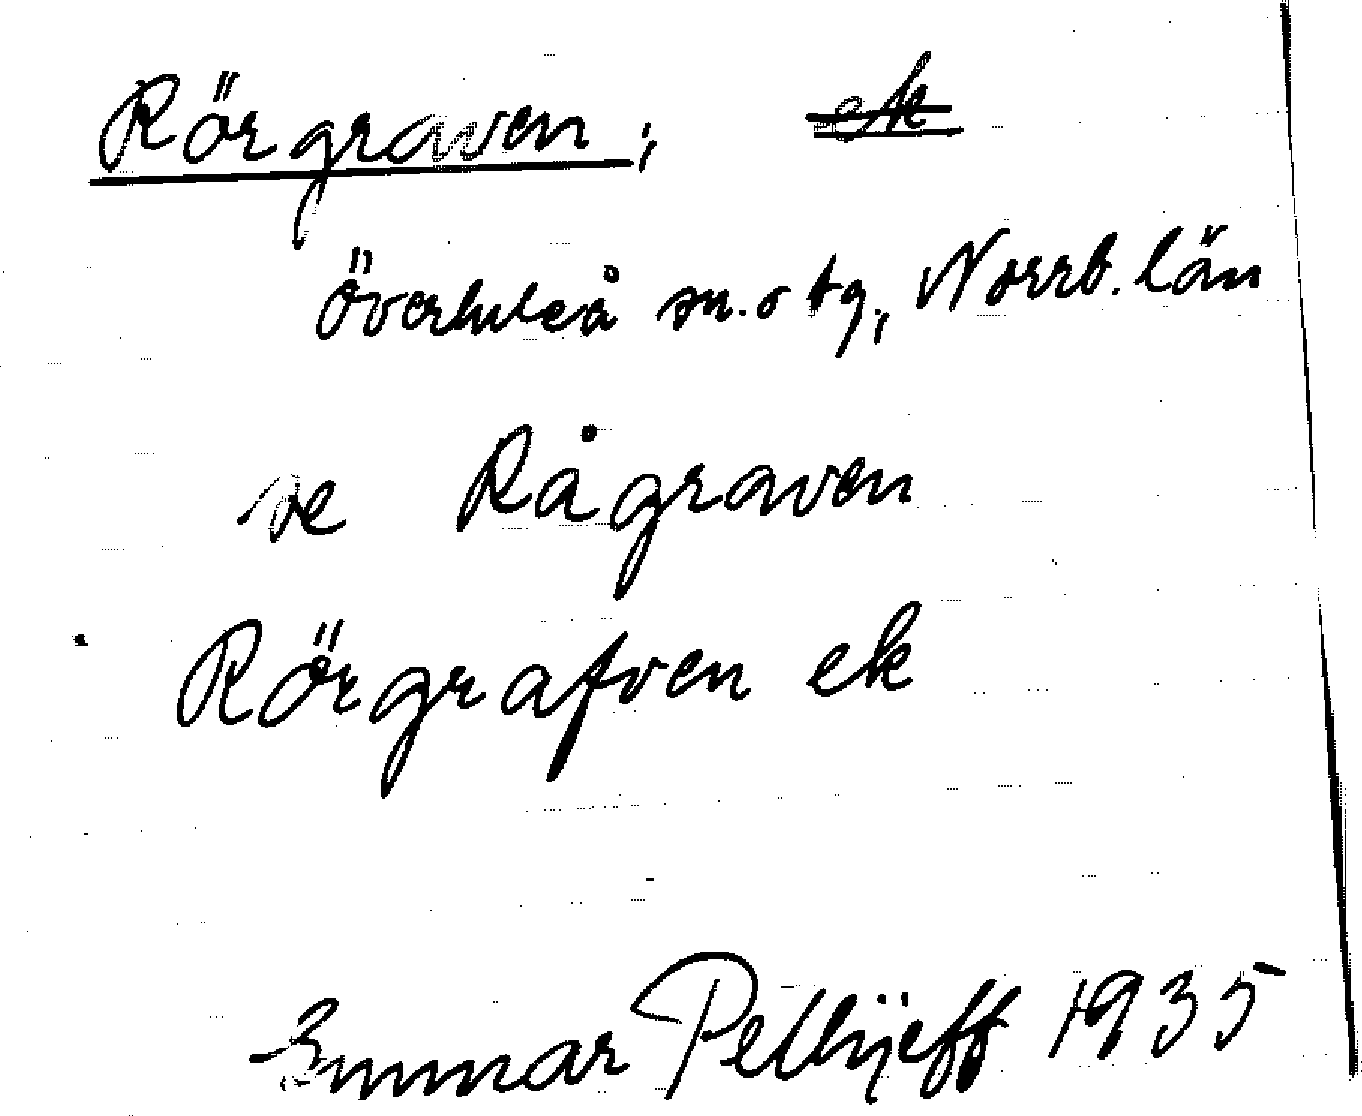 Rörgraven; ek
Överluleå sn. o tg, Norrb. län
se Rågraven
Rörgrafven ek
Gunnar Pellijeff 1935